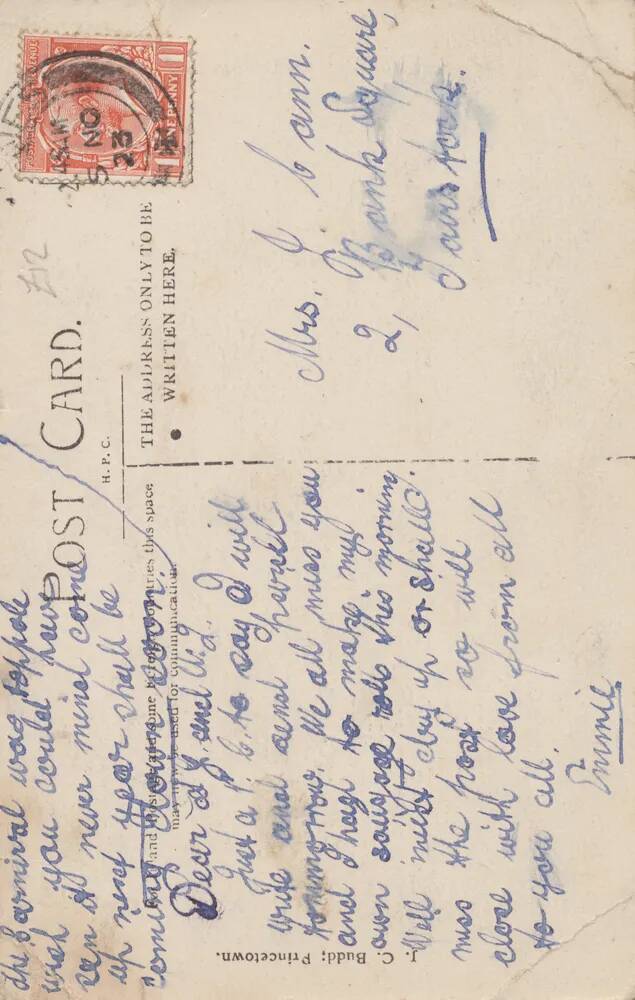 POST CARD.
H. P. C.
THE ADDRESS ONLY TO BE
WRITTEN HERE.
£12
POSTAGE REVENUE
ONE PENNY
5 NO
23
the Carnival was toppole
wish you could have
seen it never mind come
up next year shall be
coming down soon.
and some countries this space
may now be used for communication.
Dear and
Just a P. C. to say I will
write and send parcell
tommorrow. We all miss you
and I hast to make my
own sausage rolls this morning.
Well must dry up or shall
miss the post so will
close with love from all
to you all.
Emmie
Mrs. J. Cann.
2, Bank Square,
Tavistock.
J. C. Budd; Princetown.